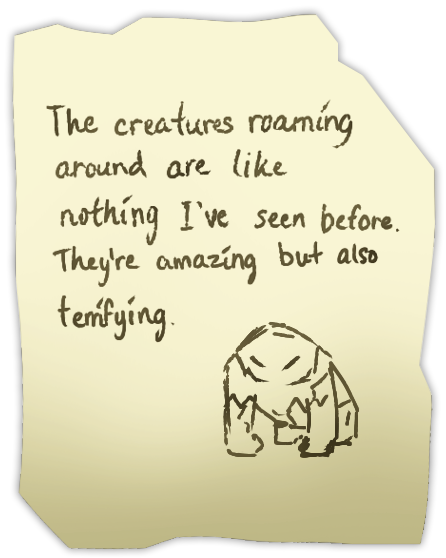 The creatures roaming
around are like
nothing I've seen before.
They're amazing but also
terrifying.